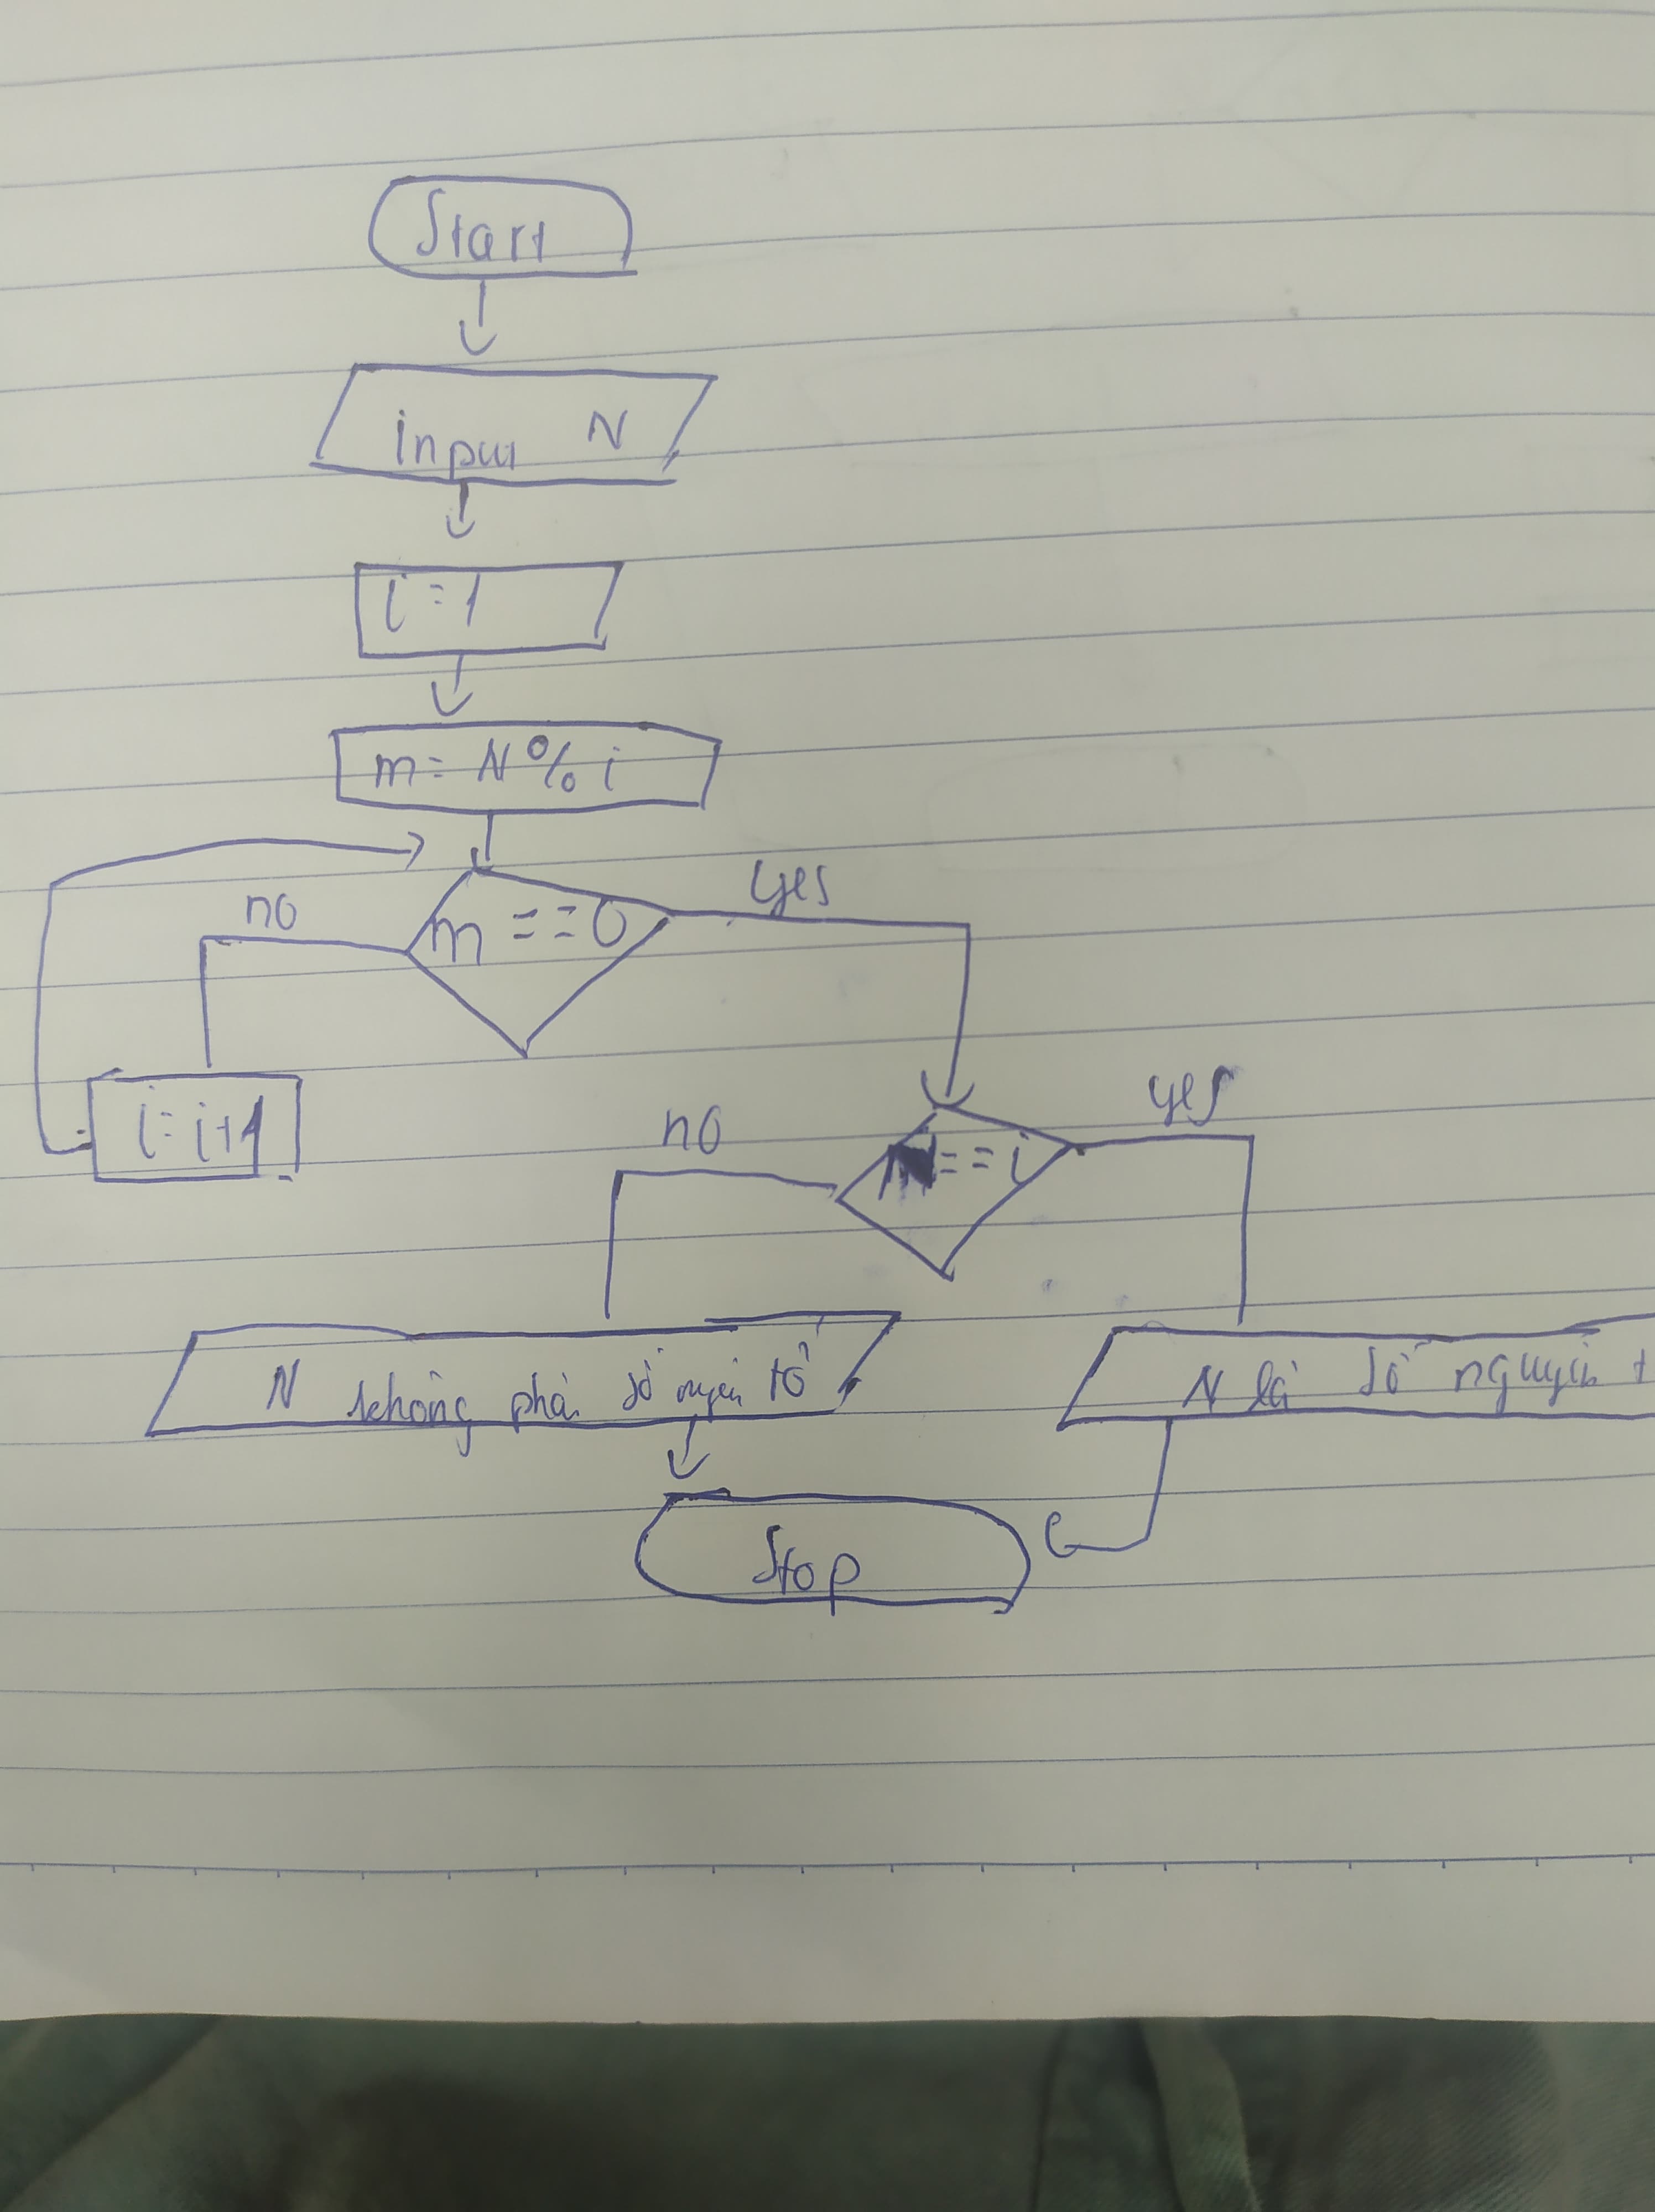 Start
input N
i = 1
m = N % i
yes
no
m == 0
i = i+1
yes
no
N == i
N không phải số nguyên tố
N là số nguyên t
Stop